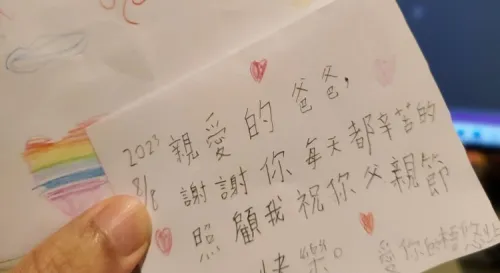 2023 親愛的爸爸,
8/8 謝謝你每天都辛苦的
照顧我祝你父親節
快樂。
愛你的